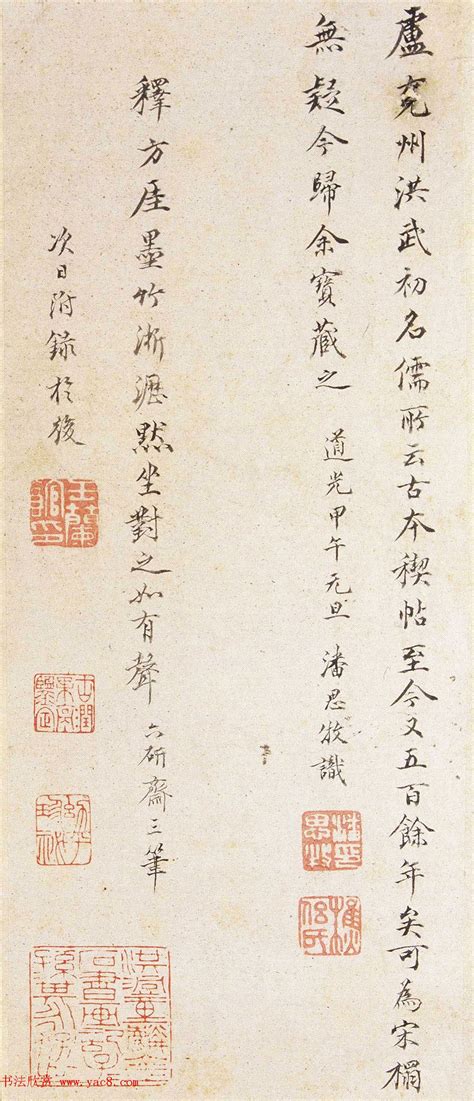 盧兖州洪武初名儒所云古本稧帖至今又五百餘年矣可為宋榻
無疑今歸余寶藏之
道光甲午元旦潘思牧識
釋方厓墨竹淅瀝黙坐對之如有聲
六研齋三筆
次日附錄於後
书法欣赏 www.yac8.com